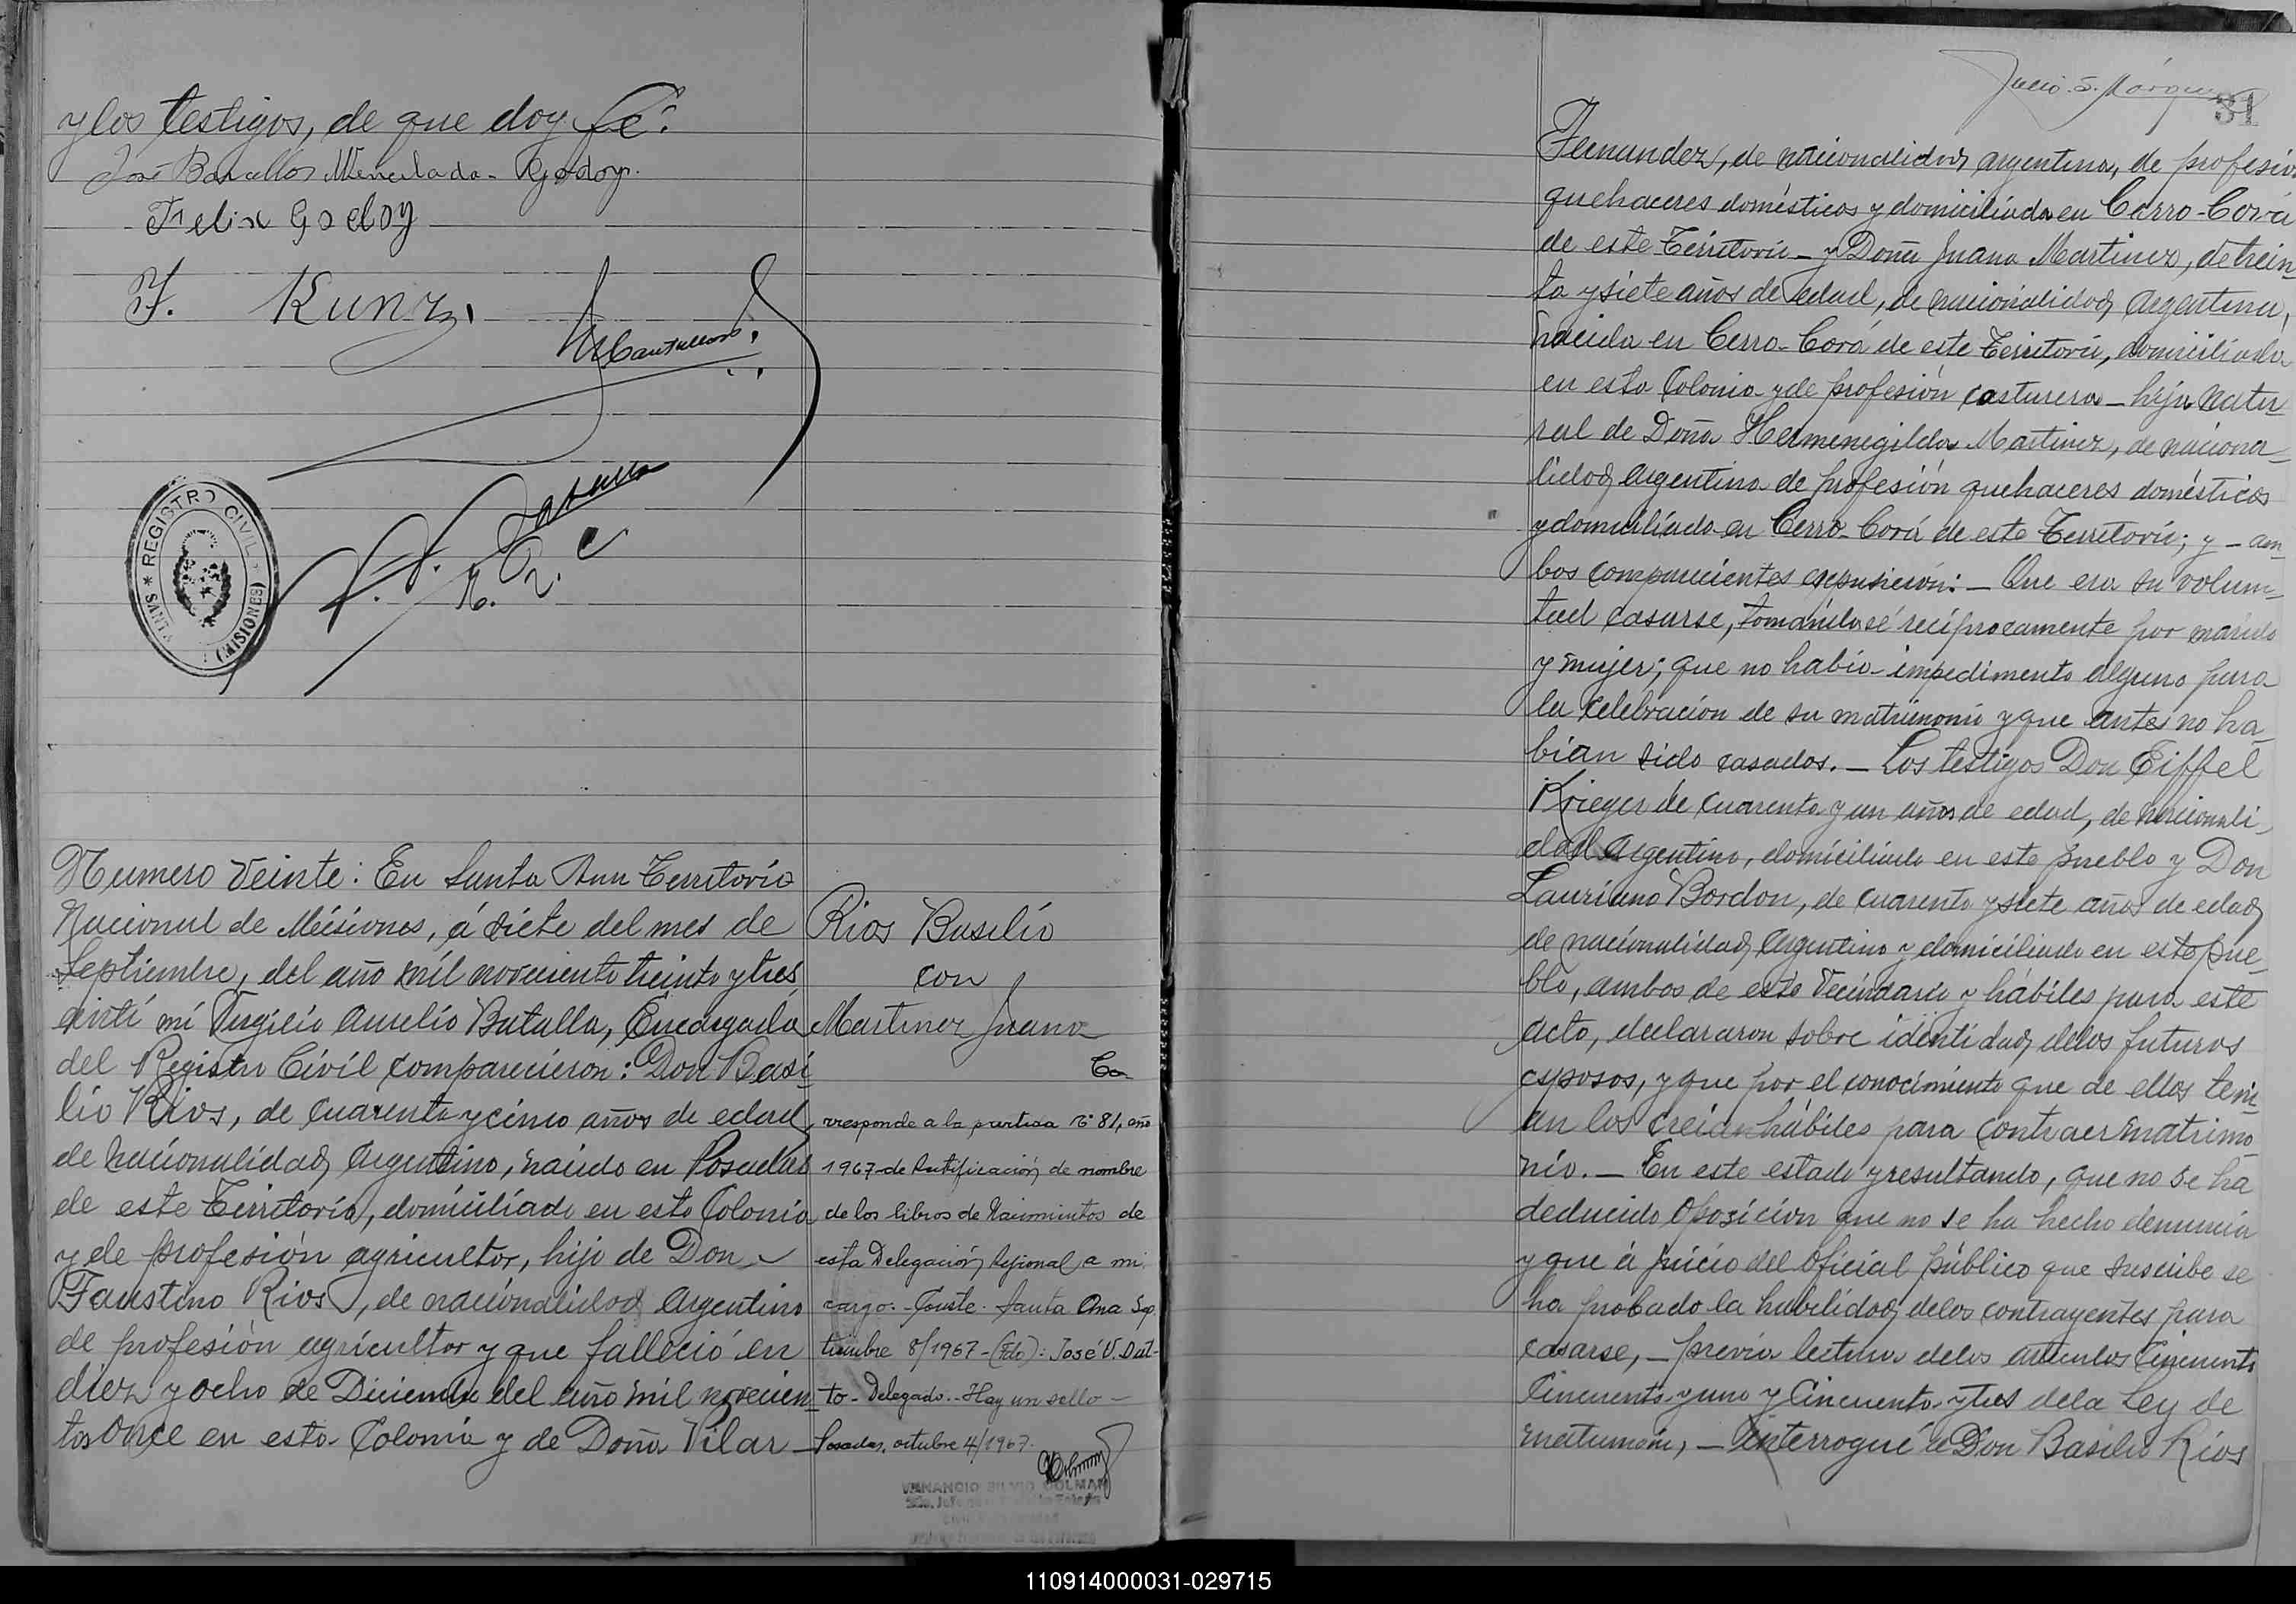 y los testigos, de que doy fé.
Felix Godoy
F. Kunz
REGISTRO CIVIL
(MISIONES)
Numero Veinte: En Santa Ana Territorio
Nacional de Misiones, á siete del mes de
Septiembre, del año mil noveciento treinta y tres
ante mí Virgilio Aurelio Batalla, Encargado
del Registro Civil comparecieron: Don Basi
lio Rios, de cuarenta y cinco años de edad,
de nacionalidad Argentino, nacido en Posadas
de este Territorio, domiciliado en esta Colonia
y de profesión agricultor, hijo de Don
Faustino Rios, de nacionalidad Argentino
de profesión agricultor y que falleció en
diez y ocho de Diciembre del año mil novecien
tos once en esta Colonia y de Doña Vilar
Rios Basilio
con
Martinez Juana
Co
rresponde a la partida Nº 81, año
1967 de Rectificación de nombre
de los libros de Nacimientos de
esta Delegación Regional a mi
cargo.- Conste. Santa Ana Sep
tiembre 8/1967 - (Fdo): José V.
to - Delegado.- Hay un sello -
Posadas, octubre 4/1967.
VENANCIO SILVIO COLMAN
31
Fernandez, de nacionalidad argentina, de profesión
quehaceres domésticos y domiciliada en Cerro-Cora
de este Territorio - y Doña Juana Martinez, de trein
ta y siete años de edad, de nacionalidad Argentina,
nacida en Cerro-Corá de este Territorio, domiciliada
en esta Colonia y de profesión costurera - hija natu
ral de Doña Hermenegilda Martinez, de naciona
lidad Argentina de profesión quehaceres domésticos
y domiciliada en Cerro-Corá de este Territorio; y - am
bos comparecientes expusieron: - Que era su volun
tad casarse, tomándose recíprocamente por marido
y mujer; que no había impedimento alguno para
la celebracion de su matrimonio y que antes no ha
bian sido casados. - Los testigos Don Eiffel
Krieger de cuarenta y un años de edad, de nacionali
dad Argentino, domiciliado en este pueblo y Don
Lauriano Bordon, de cuarenta y siete años de edad,
de nacionalidad Argentino y domiciliado en este pue
blo, ambos de este Vecindario y hábiles para este
acto, declararon sobre identidad de los futuros
esposos, y que por el conocimiento que de ellos teni
an los creian hábiles para contraer matrimo
nio. - En este estado y resultando, que no se ha
deducido oposicion que no se ha hecho denuncia
y que á juicio del Oficial público que suscribe se
ha probado la habilidad de los contrayentes para
casarse, - previa lectura de los articulos Cincuenta
Cincuenta y uno y Cincuenta y tres de la Ley de
matrimonio, - interrogué a Don Basilio Rios
110914000031-029715